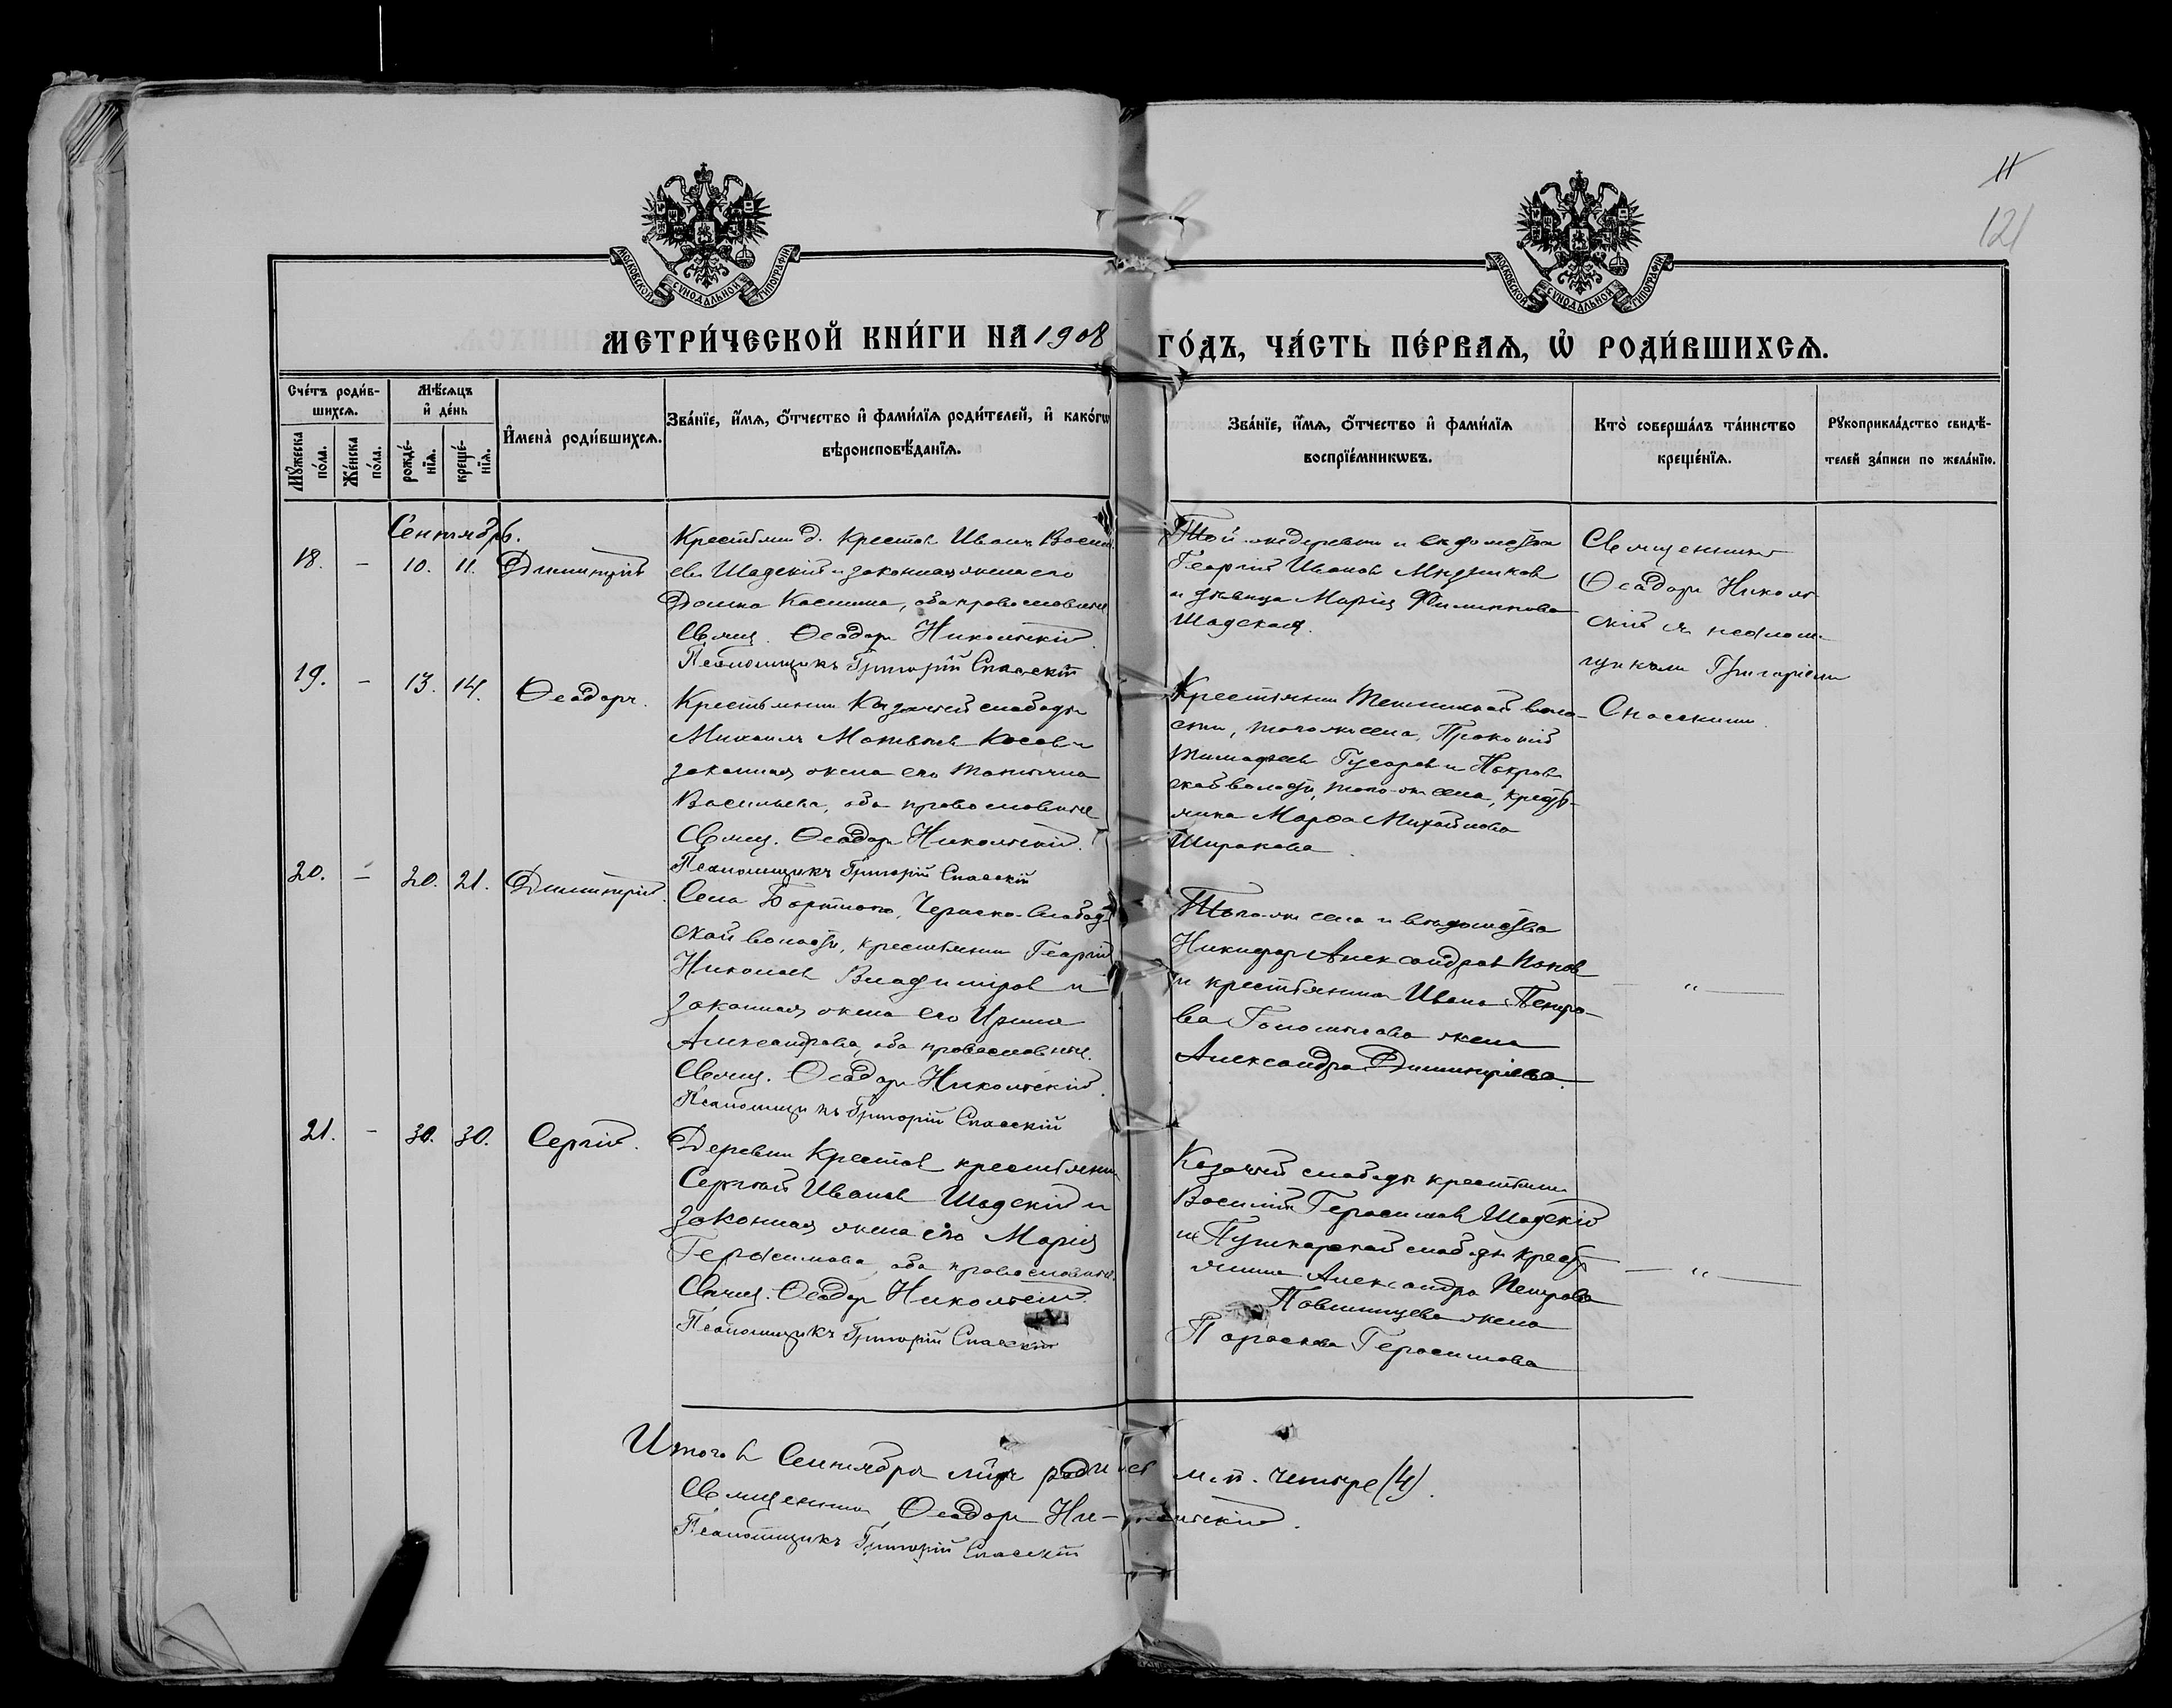 11
121
МОСКОВСКОЙ СѴНОДАЛЬНОЙ ТИПОГРАФІИ
МОСКОВСКОЙ СѴНОДАЛЬНОЙ ТИПОГРАФІИ
МЕТРИ́ЧЕСКОЙ КНИ́ГИ НА 1908
ГО́ДЪ, ЧА́СТЬ ПЕ́РВАѦ, Ѽ РОДИ́ВШИХСѦ.
Сче́тъ роди́в-
шихсѧ.
Мѣ́сѧцъ
и҆ де́нь
Мꙋ́жеска по́ла.
Же́нска по́ла.
рожде́-
нїѧ.
креще́-
нїѧ.
И҆мена̀ роди́вшихсѧ.
Зва́нїе, и҆́мѧ, ѻ҆́тчество и҆ фами́лїѧ роди́телей, и҆ како́гѡ
вѣроисповѣ́данїѧ.
Зва́нїе, и҆́мѧ, ѻ҆́тчество и҆ фами́лїѧ
воспрїе́мникѡвъ.
Кто̀ соверша́лъ та́инство
креще́нїѧ.
Рꙋкоприкла́дство свидѣ́-
телей за́писи по жела́нїю.
Сентябрь.
18. – 10. 11. Димитрій
Крестьянин д. Крестов Иван Василь
ев Шадскій и законная жена его
Домна Касьянова, оба православные
Свящ. Ѳеодоръ Никольскій
Псаломщикъ Григорій Спасскій
Той же деревни и ведомства
Георгій Иванов
и девица Марія Филиппова
Шадская.
Священникъ
Ѳеодоръ Николь-
скій с псалом-
щиком Григоріем
Спасским.
19. – 13. 14. Ѳеодоръ.
Крестьянин Казачьей слободы
Михаилъ Матвеев Косов и
законная жена его Татьяна
Васильева, оба православные
Свящ. Ѳеодоръ Никольскій.
Псаломщикъ Григорій Спасскій
Крестьянин воло-
сти, того же села, Прокопій
Тимофеев Гусаров и Покров
ской волости, того же села, кресть-
янка Марѳа Михайлова
Ширакова.
20. – 20. 21. Димитрій.
Села Бортного, Черняно-Слобод
ской волости, крестьянин Георгій
Николаев Владиміров и
законная жена его Ирина
Александрова, оба православные.
Свящ. Ѳеодоръ Никольскій
Псаломщикъ Григорій Спасскій
Того же села и ведомства
Никифор Александров Попов
и крестьянина Ивана Петро-
ва жена
Александра Димитріева.
— „ —
21. – 30. 30. Сергій.
Деревни Крестов крестьянин
Сергей Иванов Шадскій и
законная жена его Марія
Герасимова, оба православные.
Свящ. Ѳеодоръ Никольскій.
Псаломщикъ Григорій Спасскій
Казачьей слободы крестьянин
Василій Герасимов Шадскій
и Пушкарской слободы кресть
янина Александра Петрова
жена
Параскева Герасимова
— „ —
Итого в Сентябре месяце родилось м. п. четыре (4).
Священник Ѳеодоръ Никольскій.
Псаломщикъ Григорій Спасскій